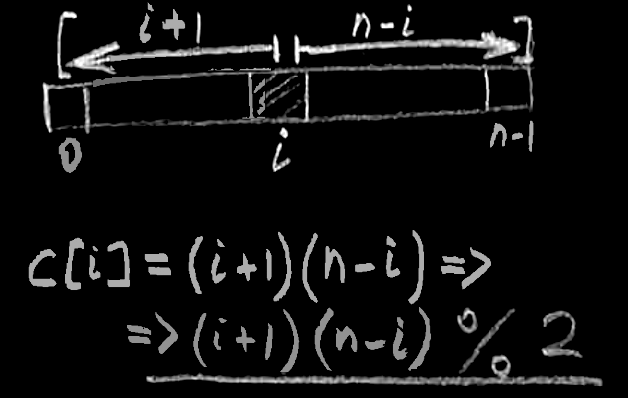 [ i+1 n-i ]
0 i n-1
c[i] = (i+1)(n-i) =>
=> (i+1)(n-i) % 2